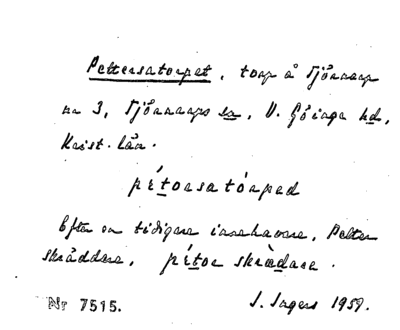 Pettersatorpet, torp å Tjörnarp
nr 3, Tjörnarps sn, V. Göinge hd,
Krist. län.
pétorsatórped
Efter en tidigare innehavare, Petter
skräddare, pétor skrædare.
Nr 7515. J. Sagers 1959.